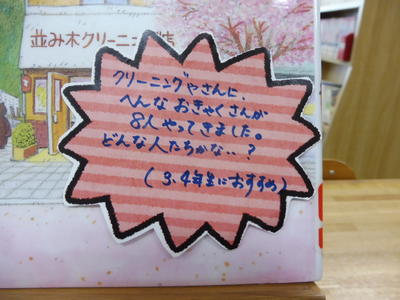 並み木クリーニング店
クリーニングやさんに、
へんなおきゃくさんが
8人やってきました。
どんな人たちかな‥?
(3.4年生におすすめ)